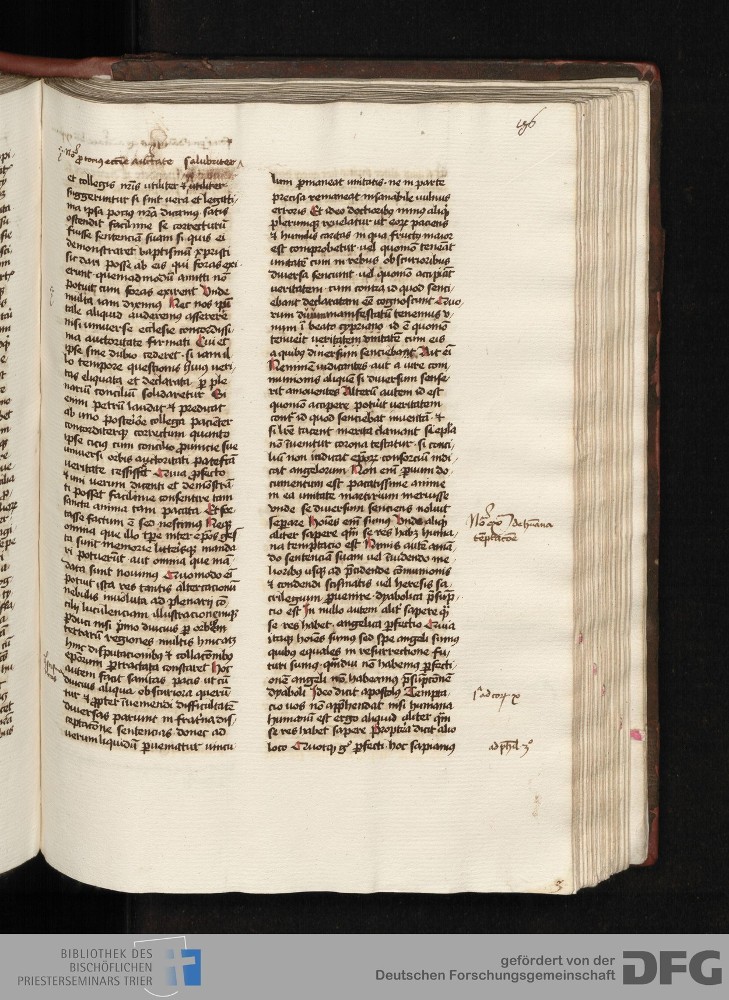 et collegis nr̃is utiliter ⁊ utiliter
suggeruntur si sint vera et legati
ma ipsa pocius nr̃a ducamus satis
ostendit facillime se correcturū
fuisse sentenciā suam si quis ei
demonstraret baptismū xpristi
sic dari posse ab eis qui foras exi
erunt quemadmodū amitti nō
potuit cum foras exirent Unde
multa iam diximus Nec nos ip̄i
tale aliquid auderemus asserere
nisi universe ecclesie concordissi
ma auctoritate firmati Cui et
ipse sine dubio cederet si iam il
lo tempore questionis huius veri
tas eliquata et declarata ꝑ ple
nariū conciliū solidaretur Si
enim petrū laudat ⁊ predicat
ab uno posteriore collega pacienter
concorditerqꝫ correctum quanto
ipse cicius cum concilio ꝓuincie sue
universi orbis auctoritati patefacta
veritate cessisset Quia ꝓfecto
⁊ uni verum dicenti et demōstrā
ti posset facillime consentire tam
sancta anima tam pacata Et for
tasse factum ē sed nescimus Neqꝫ
omnia que illo tp̄re inter ep̄os gesta
ta sunt memorie litterisqꝫ manda
ri potuerūt aut omnia que mā
data sunt novimus Quomodo em̄
potuit ista res tantis altercacionū
nebulis involuta ad plenarii cō
cilii luculentam illustracionemqꝫ
ꝑduci nisi primo diucius ꝑ orbem
terrarū regiones multis hinc atqꝫ
hinc disputacionibꝫ ⁊ collacōnibꝫ
ep̄orum ꝑtractata constaret Hoc
autem facit sanitas pacis ut cū
diucius aliqua obscuriora querū
tur ⁊ ꝓpter inveniendi difficultatē
diversas pariunt in fraterna dis
ceptacōne sentencias donec ad
verum liquidū ꝑveniatur vincu
lum ꝑmaneat unitatis ne in parte
precisa remaneat insanabile vulnus
erroris Et ideo doctioribꝫ minus aliqͥd
plerumqꝫ revelatur ut eorū paciens
⁊ humilis caritas in qua fructꝰ maior
est comprobetur vel quomō teneāt
unitatē cum in rebus obscurioribus
diversa senciunt vel quomō accipiāt
veritatem cum contra id quod senci
ebant declaratam eē cognoscunt Quo
rum duum manifestatū tenemus v
num ī beato cypriano id ē quomō
tenuerit veritatem unitatē cum eis
a quibꝫ diversum senciebant Ait em̄
Neminē iudicantes aut a iure com
munionis aliquē si diversum sense
rit amoventes Alterū autem id est
quomō accipere potuit veritatem
contͣ id quod senciebat inventā ⁊
si lr̄e tacent merita clamant si ep̄la
nō invenitur corona testatur si conci
liū non indicat ep̄orum consorciū indi
cat angelorum Non em̄ parvum do
cumentum est pacatissime anime
in ea unitate martirium meruisse
unde se diversum senciens noluit
separare Homines em̄ sumus Unde aliqͥd
aliter sapere qͣm se res habꝫ huma
na temptacio est Nimis autē amā
do sentenciā suam vel invidendo me
lioribus usqꝫ ad p̄cidende cōmunionis
⁊ condendi scismatis vel heresis sa
crilegium ꝑvenire dyabolica p̄sūp
cio est In nullo autem alit̄ sapere qͣ
se res habet angelica ꝑfectio Quia
itaqꝫ hoīes sumus sed spe angeli sumus
quibꝫ equales in resurrectione fu
turi sumus quādiu nō habemus ꝑfecti
onē angeli nō habeamus p̄sūptionē
dyaboli Ideo dicit apostolus Tempta
cio vos nō app̄hendat nisi humana
humanū est ergo aliquid aliter qͣm
se res habet sapere Propterea dicit alio
loco Quotqͦt gͦ ꝑfecti hoc sapiamus
No͡ exͦ de hūana
tēptacōe
jᵃ ad corͥ x
ad phil 3ͦ
BIBLIOTHEK DES
BISCHÖFLICHEN
PRIESTERSEMINARS TRIER
gefördert von der
Deutschen Forschungsgemeinschaft
DFG